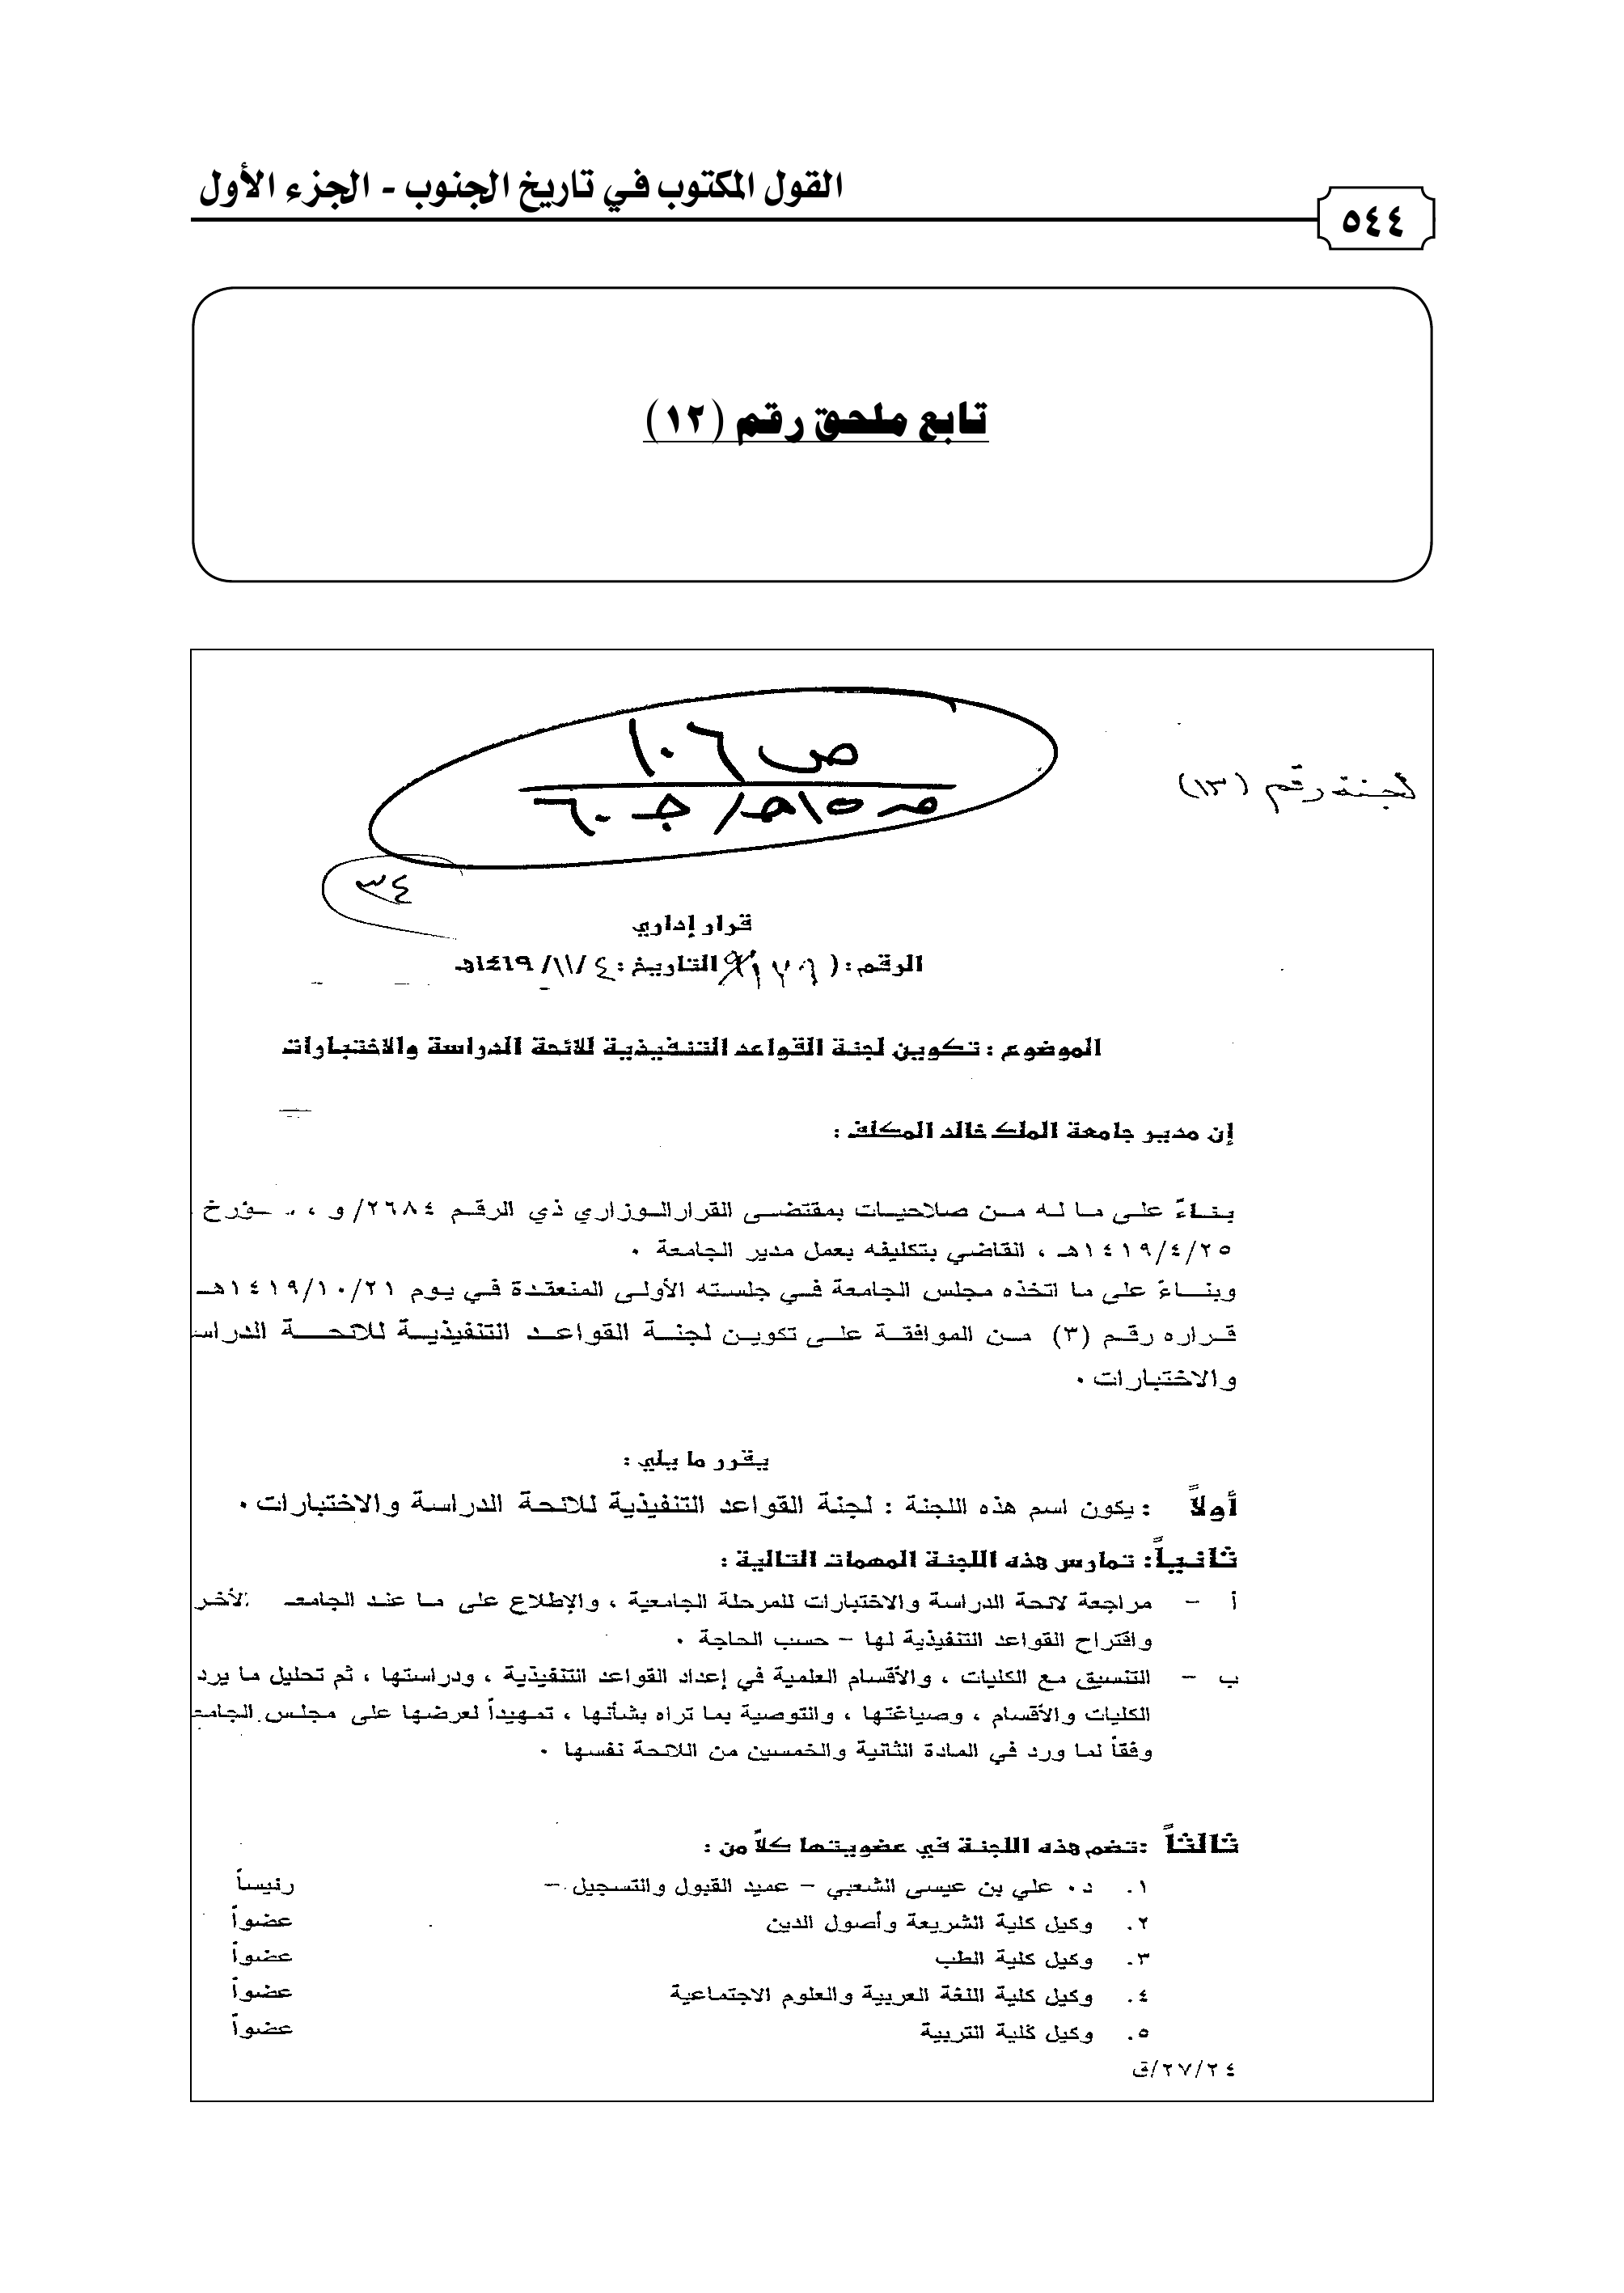 القول المكتوب في تاريخ الجنوب - الجزء الأول
٥٤٤
تابع ملحق رقم (١٢)
ص ١٠٦
لجنة رقم (١٣)
٣٤
قرار إداري
الرقم : ( التاريخ : ٤ /١١/ ١٤١٩هـ
الموضوع : تكوين لجنة القواعد التنفيذية للائحة الدراسة والاختبارات
إن مدير جامعة الملك خالد المكلف :
بناءً على ما له من صلاحيات بمقتضى القرار الوزاري ذي الرقم ٢٦٨٤/ و ،
١٤١٩/٤/٢٥هـ ، القاضي بتكليفه بعمل مدير الجامعة ٠
وبناءً على ما اتخذه مجلس الجامعة في جلسته الأولى المنعقدة في يوم ١٤١٩/١٠/٢١هـ
قراره رقم (٣) من الموافقة على تكوين لجنة القواعد التنفيذية للائحة
والاختبارات ٠
يقرر ما يلي :
أولاً : يكون اسم هذه اللجنة : لجنة القواعد التنفيذية للائحة الدراسة والاختبارات ٠
ثانياً : تمارس هذه اللجنة المهمات التالية :
أ - مراجعة لائحة الدراسة والاختبارات للمرحلة الجامعية ، والإطلاع على ما عند
واقتراح القواعد التنفيذية لها - حسب الحاجة ٠
ب - التنسيق مع الكليات ، والأقسام العلمية في إعداد القواعد التنفيذية ، ودراستها ، ثم تحليل ما يرد
الكليات والأقسام ، وصياغتها ، والتوصية بما تراه بشأنها ، تمهيداً لعرضها على مجلس
وفقاً لما ورد في المادة الثانية والخمسين من اللائحة نفسها ٠
ثالثاً : تضم هذه اللجنة في عضويتها كلاً من :
١. د٠ علي بن عيسى الشعبي - عميد القبول والتسجيل - رئيساً
٢. وكيل كلية الشريعة وأصول الدين عضواً
٣. وكيل كلية الطب عضواً
٤. وكيل كلية اللغة العربية والعلوم الاجتماعية عضواً
٥. وكيل كلية التربية عضواً
٢٧/٢٤/ق